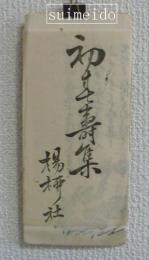 suimeido
初春壽集
楊柳社